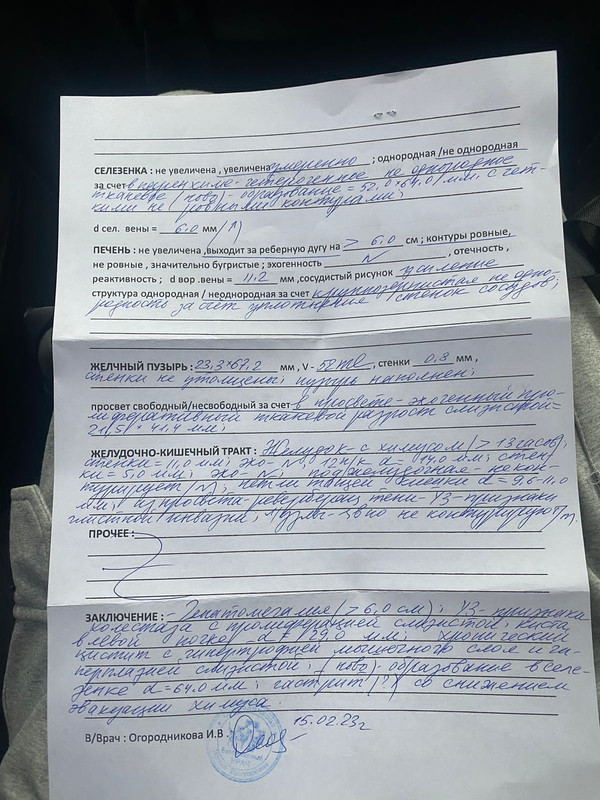 СЕЛЕЗЕНКА : не увеличена , увеличена умеренно ; однородная /не однородная
за счет в паренхиме - гетерогенное не однородное
тканевое (новo)- образование = 52,0*64,0/мм, с чет-
кими не ровными контурами;
d сел. вены = 6,0 мм /↑)
ПЕЧЕНЬ : не увеличена ,выходит за реберную дугу на > 6,0 см ; контуры ровные,
не ровные , значительно бугристые ; эхогенность N , отечность ,
реактивность ; d вор .вены = 11,2 мм ,сосудистый рисунок усиление
структура однородная / неоднородная за счет крупнозернистая не одно-
родность за счет уплотнения стенок сосудов;
ЖЕЛЧНЫЙ ПУЗЫРЬ : 23,3*67,2 мм , V - 52 ml , стенки 0,8 мм ,
стенки не утолщены; пузырь наполнен;
просвет свободный/несвободный за счет в просвете - эхогенный про-
лиферативный тканевой разрост слизистой =
21,5 * 41,4 мм;
ЖЕЛУДОЧНО-КИШЕЧНЫЙ ТРАКТ : Желудок с химусом (> 13 часов);
стенки = 11,0 мм; эхо - N; 12п/к d = 14,0 мм; стен
ки = 5,0 мм; эхо - N; поджелудочная - не кон-
турирует (N); петли тощей кишки d = 9,6-11,0
мм; из просвета реверберац. тени - УЗ-признаки
глистной инвазии; л/узлы - явно не контурируют/
ПРОЧЕЕ :
ЗАКЛЮЧЕНИЕ : - Гепатомегалия (> 6,0 см); УЗ-признаки
холестаза с пролиферацией слизистой; киста
в левой почке - d = 29,0 мм; хронический
цистит с гипертрофией мышечного слоя и ги-
перплазией слизистой; (ново)-образование в селе-
зенке d = 64,0 мм; гастрит (?) со снижением
эвакуации химуса.
15.02.23г
В/Врач : Огородникова И.В